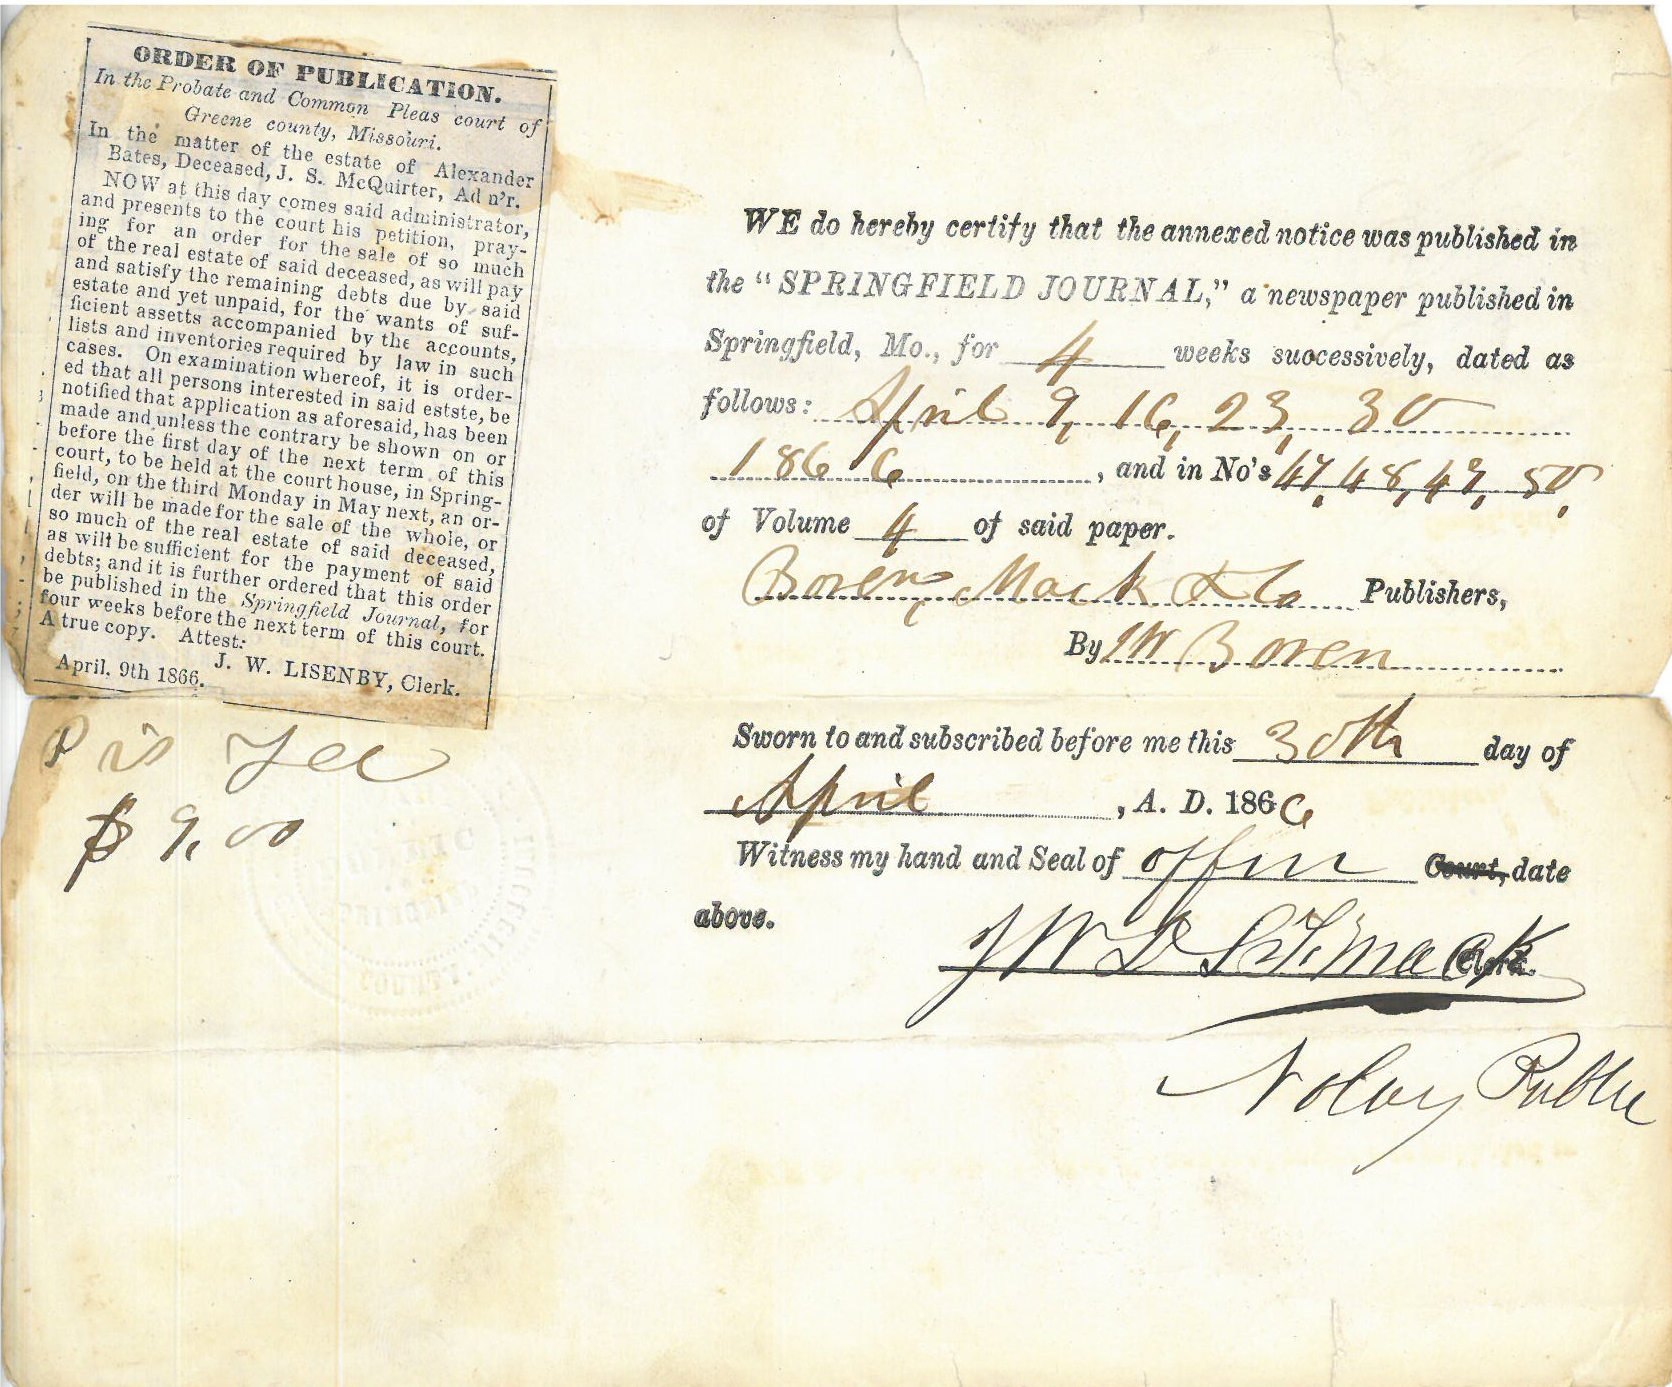 ORDER OF PUBLICATION.
In the Probate and Common Pleas court of
Greene county, Missouri.
In the matter of the estate of Alexander
Bates, Deceased, J. S. McQuirter, Ad n'r.
NOW at this day comes said administrator,
and presents to the court his petition, pray-
ing for an order for the sale of so much
of the real estate of said deceased, as will pay
and satisfy the remaining debts due by said
estate and yet unpaid, for the wants of suf-
ficient assetts accompanied by the accounts,
lists and inventories required by law in such
cases. On examination whereof, it is order-
ed that all persons interested in said estste, be
notified that application as aforesaid, has been
made and unless the contrary be shown on or
before the first day of the next term of this
court, to be held at the court house, in Spring-
field, on the third Monday in May next, an or-
der will be made for the sale of the whole, or
so much of the real estate of said deceased,
as will be sufficient for the payment of said
debts; and it is further ordered that this order
be published in the Springfield Journal, for
four weeks before the next term of this court.
A true copy. Attest:
J. W. LISENBY, Clerk.
April, 9th 1866.
Fee
$9.00
WE do hereby certify that the annexed notice was published in
the "SPRINGFIELD JOURNAL," a newspaper published in
Springfield, Mo., for 4 weeks successively, dated as
follows: April 9, 16, 23, 30
1866, and in No's 47, 48, 49, 50,
of Volume 4 of said paper.
Boren, Mack & Co Publishers,
By J W Boren
Sworn to and subscribed before me this 30th day of
April, A. D. 1866
Witness my hand and Seal of office Court, date
above.
Mack Clerk.
Notary Public
COUNTY